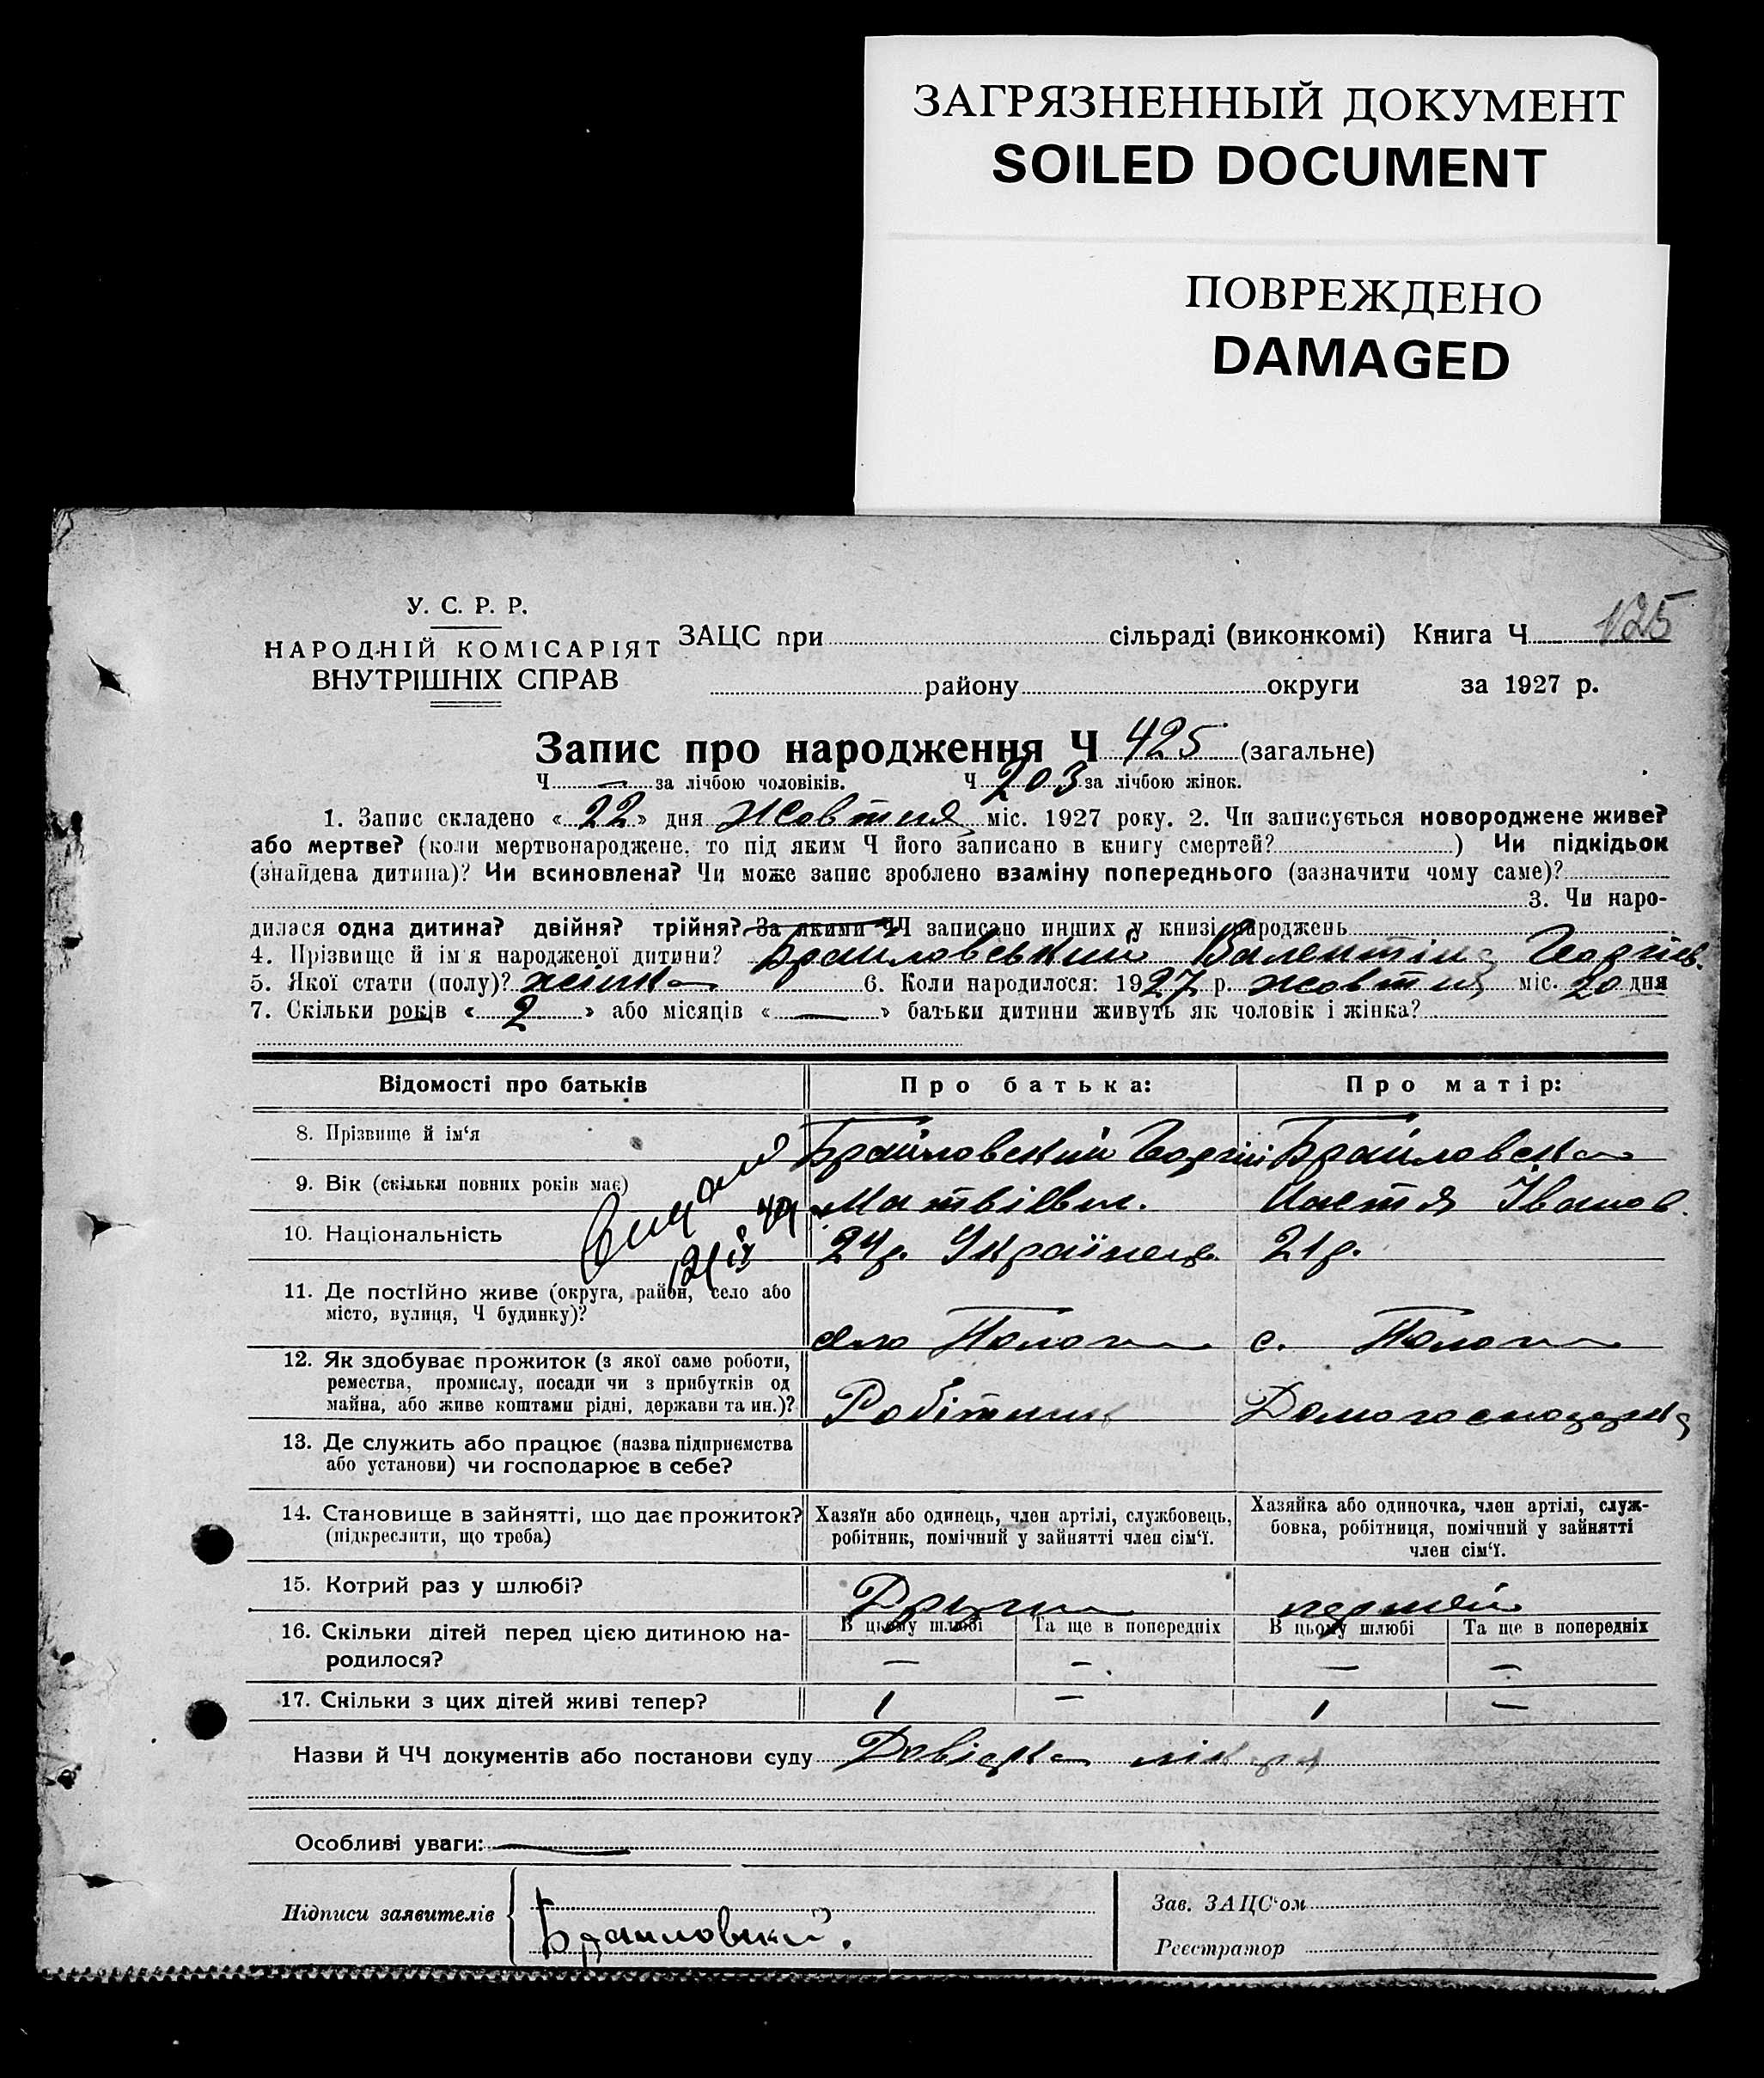 ЗАГРЯЗНЕННЫЙ ДОКУМЕНТ
SOILED DOCUMENT
ПОВРЕЖДЕНО
DAMAGED
У. С. Р. Р.
НАРОДНІЙ КОМІСАРІЯТ
ВНУТРІШНІХ СПРАВ
ЗАЦС при сільраді (виконкомі) Книга Ч 125
району округи за 1927 р.
Запис про народження Ч 425 (загальне)
Ч — за лічбою чоловіків. Ч 203 за лічбою жінок.
1. Запис складено « 22 » дня Жовтня міс. 1927 року. 2. Чи записується новороджене живе?
або мертве? (коли мертвонароджене, то під яким Ч його записано в книгу смертей? ) Чи підкідьок
(знайдена дитина)? Чи всиновлена? Чи може запис зроблено взаміну попереднього (зазначити чому саме)?
3. Чи наро-
дилася одна дитина? двійня? трійня? За якими ЧЧ записано инших у книзі народжень
4. Прізвище й ім'я народженої дитини? Браиловський Валентіна Георгіев.
5. Якої стати (полу)? жінка 6. Коли народилося: 1927 р. жовтня міс. 20 дня
7. Скільки років « 2 » або місяців « — » батьки дитини живуть як чоловік і жінка?
Відомості про батьків Про батька: Про матір:
8. Прізвище й ім‘я Браиловский Георгій Браиловска
9. Вік (скільки повних років має) Матвієвич. Настя Іванов.
10. Національність 24р. Українець 21р.
11. Де постійно живе (округа, район, село або
місто, вулиця, Ч будинку)?
село Пологи с. Пологи
12. Як здобуває прожиток (з якої саме роботи,
ремества, промислу, посади чи з прибутків од
майна, або живе коштами рідні, держави та ин.)?
Робітник Домогосподарка
13. Де служить або працює (назва підприємства
або установи) чи господарює в себе?
14. Становище в зайнятті, що дає прожиток?
(підкреслити, що треба)
Хазяїн або одинець, член артілі, службовець,
робітник, помічний у зайнятті член сім‘ї.
Хазяйка або одиночка, член артілі, служ-
бовка, робітниця, помічний у зайнятті
член сім‘ї.
15. Котрий раз у шлюбі? Други первий
16. Скільки дітей перед цією дитиною на-
родилося?
В цьому шлюбі Та ще в попередніх В цьому шлюбі Та ще в попередніх
— — — —
17. Скільки з цих дітей живі тепер? 1 — 1 —
Назви й ЧЧ документів або постанови суду Довідка лікаря
Особливі уваги: —
Підписи заявителів Браиловский.
Зав. ЗАЦС‘ом
Реєстратор